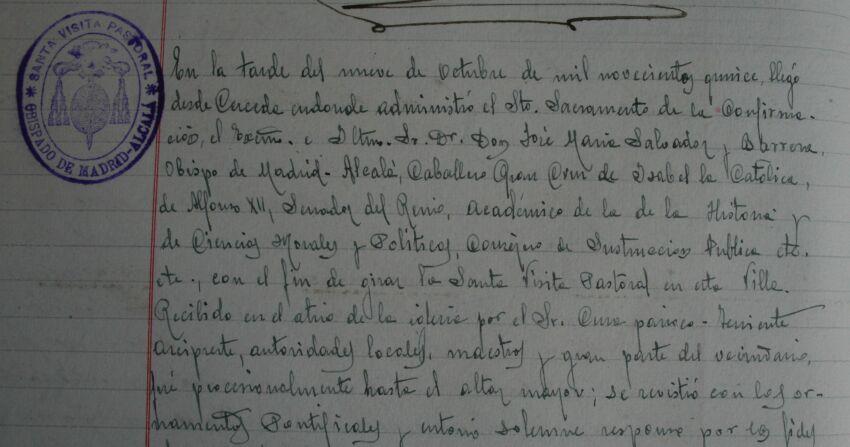 SANTA VISITA PASTORAL
OBISPADO DE MADRID-ALCALÁ
En la tarde del nueve de Octubre de mil novecientos quince, llegó
desde Cerceda endonde administró el Sto. Sacramento de la Confirma-
ción, el Excmo. e Iltmo. Sr. Dr. Don José Maria Salvador y Barrera,
Obispo de Madrid-Alcalá, Caballero Gran Cruz de Isabel la Católica,
de Alfonso XII, Senador del Reino, académico de la de la Historia y
de Ciencias Morales y Politicas, Consejero de Instruccion Publica etc.
etc., con el fin de girar la Santa Visita Pastoral en esta Villa.
Recibido en el atrio de la iglesia por el Sr. Cura parroco-Teniente
arcipreste, autoridades locales, maestros y gran parte del vecindario,
fué procesionalmente hasta el altar mayor; se revistió con los or-
namentos Pontificales y entonó solemne responso por los fieles